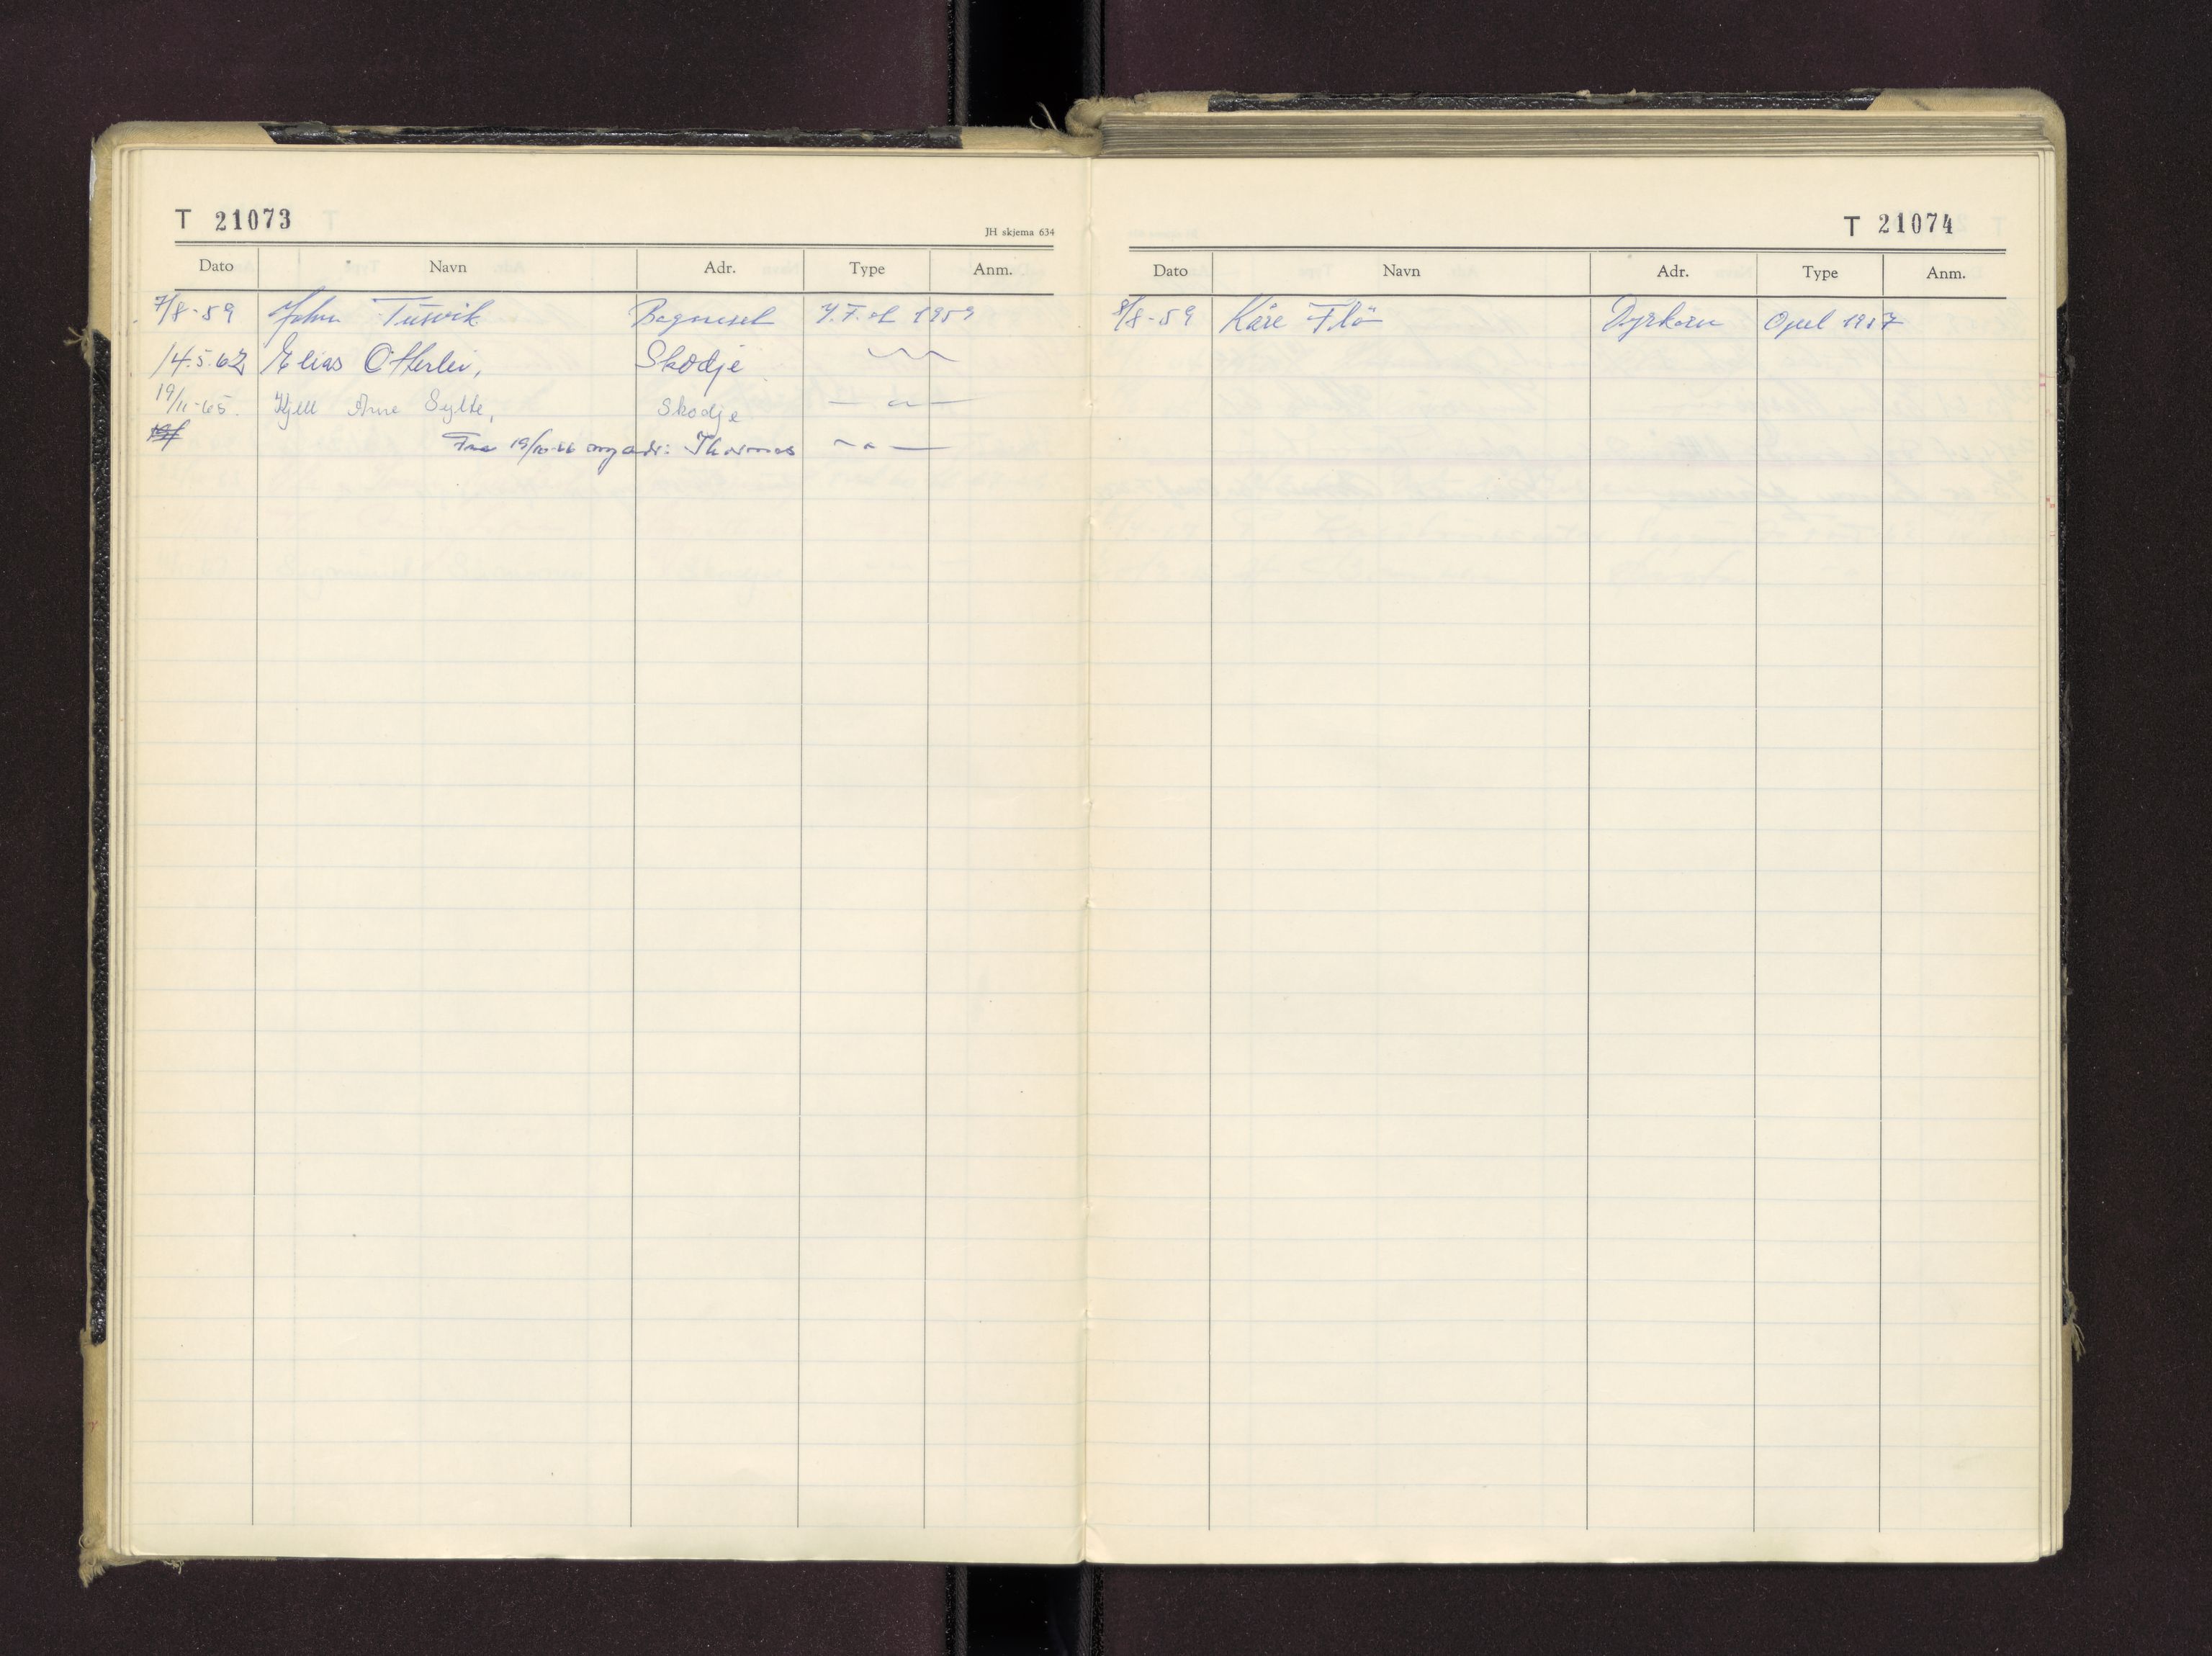 T 21073
JH skjema 634
Dato Navn Adr. Type Anm.
7/8-59 John Tusvik 1959
14.5.62 Elias Otterlei, Skodje
19/11-65. Kjell Arne Sylte, Skodje — " —
Fra 19/10-66 ny adr: — " —
T 21074
Dato Navn Adr. Type Anm.
8/8-59 Kåre Flö Dyrkorn Opel 1957